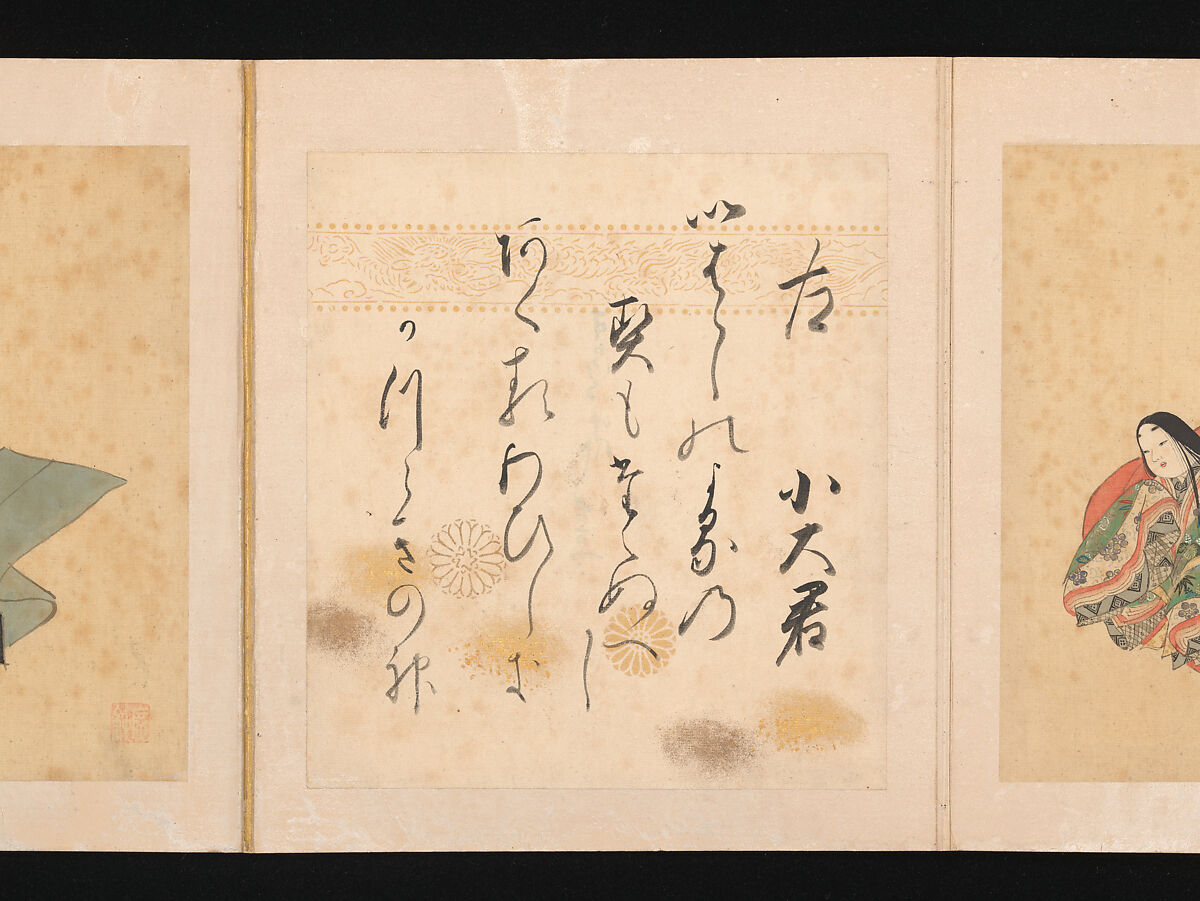 左 小大君
以者ゝしのよるの
契もたえぬへし
阿くるわひしき
かつらきの神